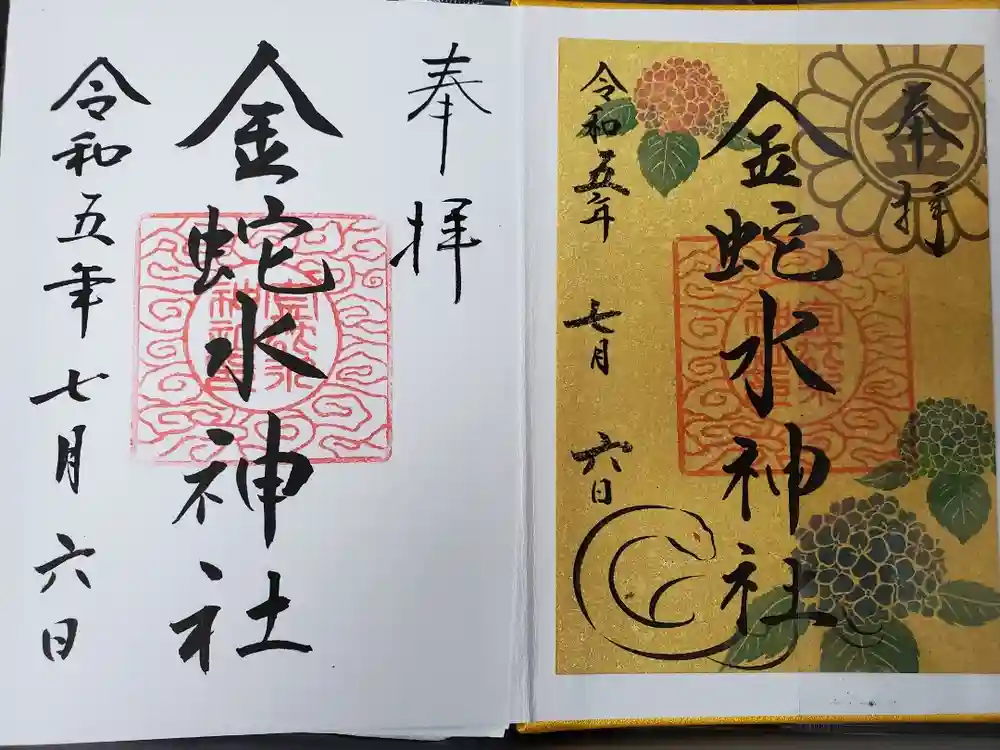 奉拝
金蛇水神社
令和五年七月六日
奉拝
金蛇水神社
令和五年
七月
六日